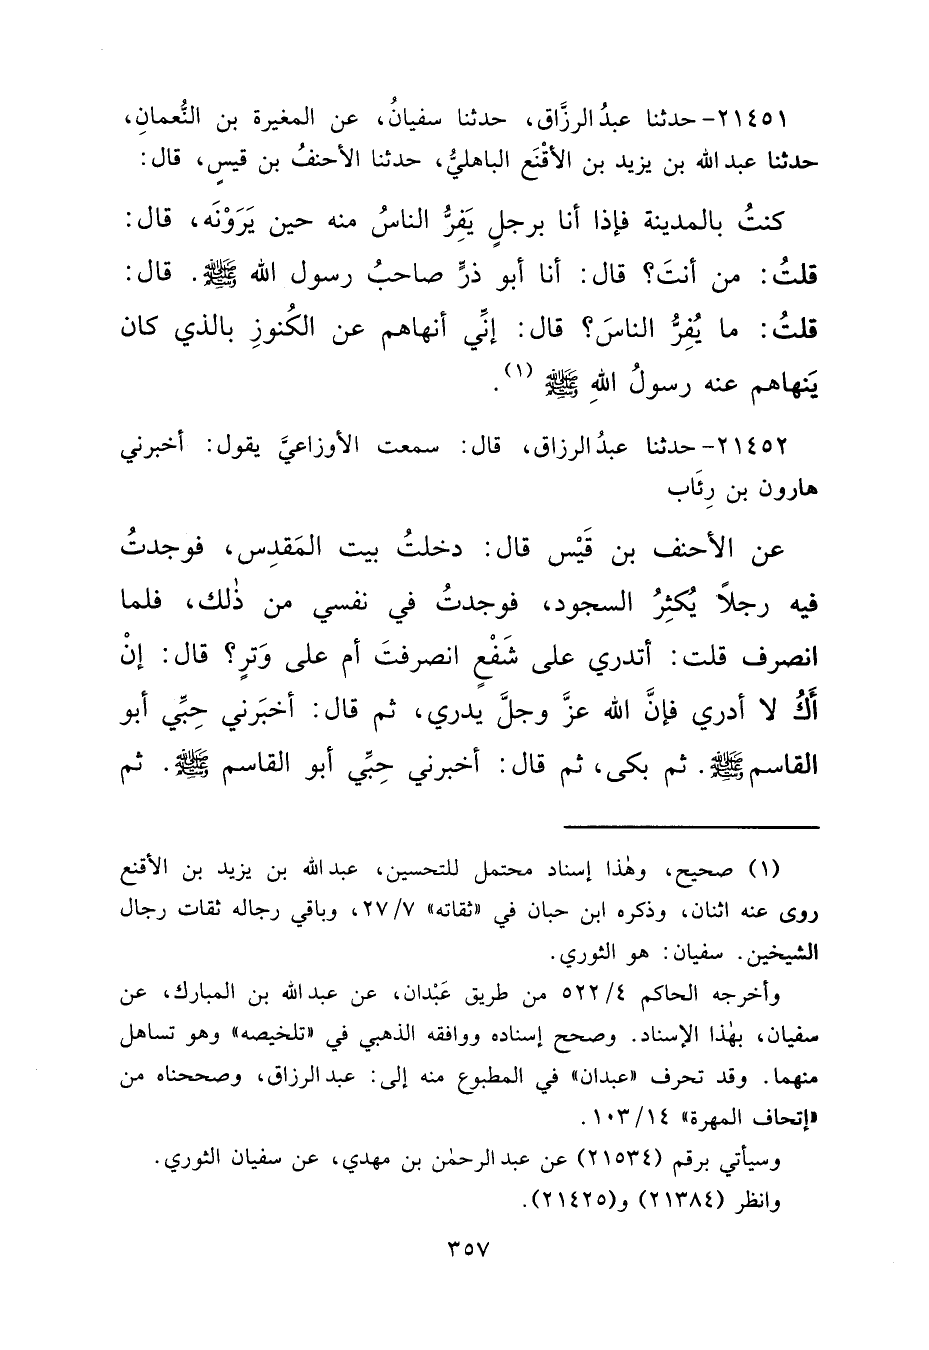 ٢١٤٥١- حدثنا عبدُ الرزَّاق، حدثنا سفيانُ، عن المغيرة بن النُّعمانِ،
حدثنا عبد الله بن يزيد بن الأقْنَع الباهليُّ، حدثنا الأحنفُ بن قيسٍ، قال:
كنتُ بالمدينة فإذا أنا برجلٍ يَفِرُّ الناسُ منه حين يَرَوْنَه، قال:
قلتُ: من أنتَ؟ قال: أنا أبو ذرٍّ صاحبُ رسول الله ﷺ. قال:
قلتُ: ما يُفِرُّ الناسَ؟ قال: إنِّي أنهاهم عن الكُنوزِ بالذي كان
يَنهاهم عنه رسولُ اللهِ ﷺ (١).
٢١٤٥٢- حدثنا عبدُ الرزاق، قال: سمعت الأوزاعيَّ يقول: أخبرني
هارون بن رِئَاب
عن الأحنف بن قَيْس قال: دخلتُ بيت المَقدِس، فوجدتُ
فيه رجلاً يُكثِرُ السجود، فوجدتُ في نفسي من ذٰلك، فلما
انصرف قلت: أتدري على شَفْعٍ انصرفتَ أم على وَترٍ؟ قال: إنْ
أَكُ لا أدري فإنَّ الله عزَّ وجلَّ يدري، ثم قال: أخبَرني حِبِّي أبو
القاسم ﷺ. ثم بكى، ثم قال: أخبرني حِبِّي أبو القاسم ﷺ. ثم
(١) صحيح، وهٰذا إسناد محتمل للتحسين، عبد الله بن يزيد بن الأقنع
روى عنه اثنان، وذكره ابن حبان في «ثقاته» ٢٧/٧، وباقي رجاله ثقات رجال
الشيخين. سفيان: هو الثوري.
وأخرجه الحاكم ٥٢٢/٤ من طريق عَبْدان، عن عبد الله بن المبارك، عن
سفيان، بهٰذا الإسناد. وصحح إسناده ووافقه الذهبي في «تلخيصه» وهو تساهل
منهما. وقد تحرف «عبدان» في المطبوع منه إلى: عبد الرزاق، وصححناه من
«إتحاف المهرة» ١٠٣/١٤.
وسيأتي برقم (٢١٥٣٤) عن عبد الرحمٰن بن مهدي، عن سفيان الثوري.
وانظر (٢١٣٨٤) و(٢١٤٢٥).
٣٥٧